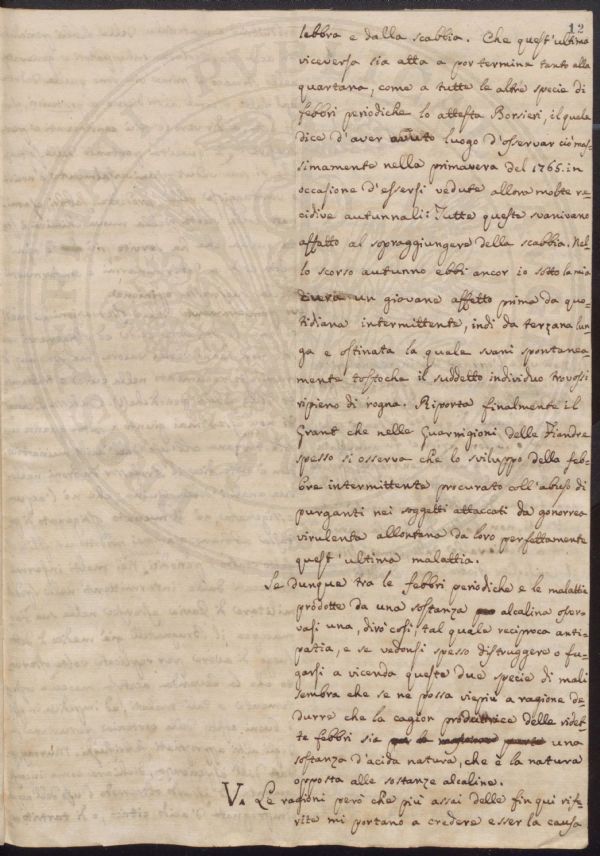 12
lebbra e dalla scabbia. Che quest'ultima
viceversa sia atta a por termina tanto alla
quartana, come a tutte le altre specie di
febbri periodiche lo attesta Borsieri, il quale
dice d'aver avuto luogo d'osservar ciò mas-
simamente nella primavera del 1765. in
occasione d'essersi vedute allora molte re-
cidive autunnali: Tutte queste svanivano
affatto al sopraggiungere della scabbia. Nel-
lo scorso autunno ebbi ancor io sotto la mia
un giovane affetto prima da quo-
tidiana intermittente, indi da terzana lun-
ga e ostinata la quale svanì spontanea-
mente tostoche il suddetto individuo trovossi
ripieno di rogna. Riporta finalmente il
Grant che nelle Guarnigioni delle Fiandre
spesso si osserva che lo sviluppo della feb-
bre intermittente procurato coll'abuso di
purganti nei soggetti attaccati da gonorrea
virulenta allontana da loro perfettamente
quest'ultima malattia.
Se dunque tra le febbri periodiche e le malattie
prodotte da una sostanza alcalina osser-
vasi una, dirò così, tal quale reciproca anti-
patia, e se vedonsi spesso distruggere o fu-
garsi a vicenda queste due specie di mali
sembra che se ne possa viepiù a ragione de-
durre che la cagion produttrice delle ridet-
te febbri sia una
sostanza d'acida natura, che è la natura
opposta alle sostanze alcaline.
V. Le ragioni però che più assai delle fin qui rife-
rite mi portano a credere esser la causa